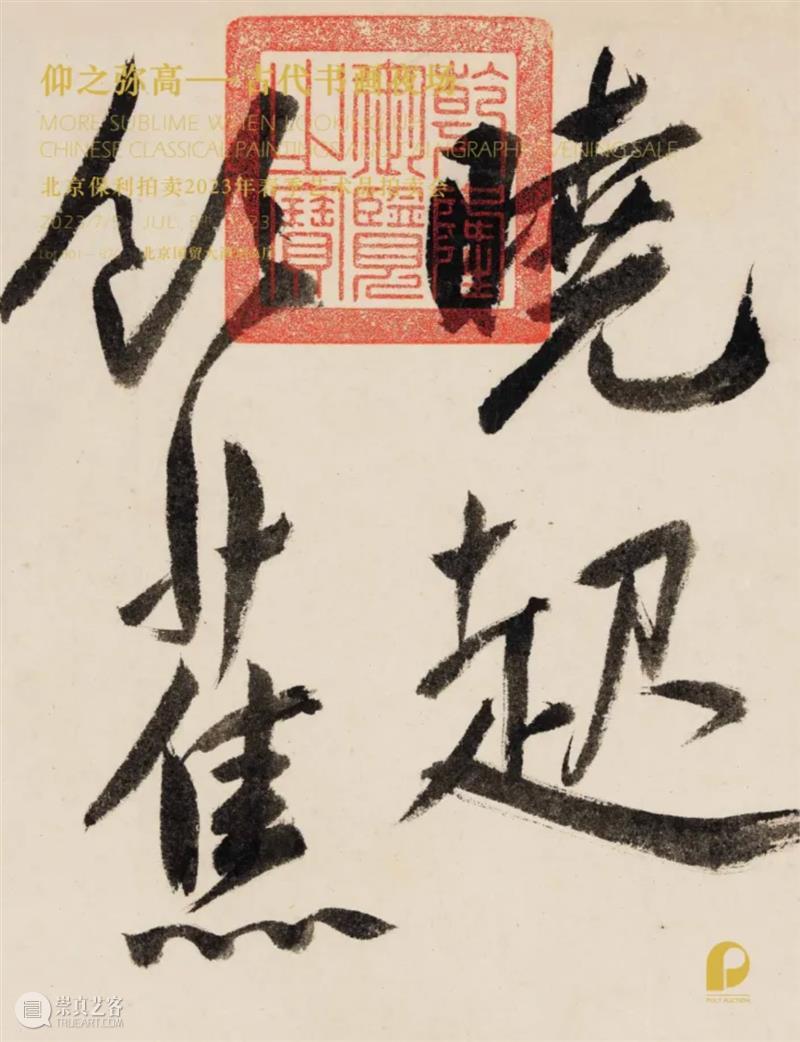 仰之弥高——古代书画夜场
MORE SUBLIME WHEN LOOKING UP
CHINESE CLASSICAL PAINTING AND CALLIGRAPHY EVENING SALE
北京保利拍卖2023年春季艺术品拍卖会
北京国贸大酒店
乾隆
御覽
之寶
曉起
蕉
POLY AUCTION
崇真艺客
TRUEART.COM